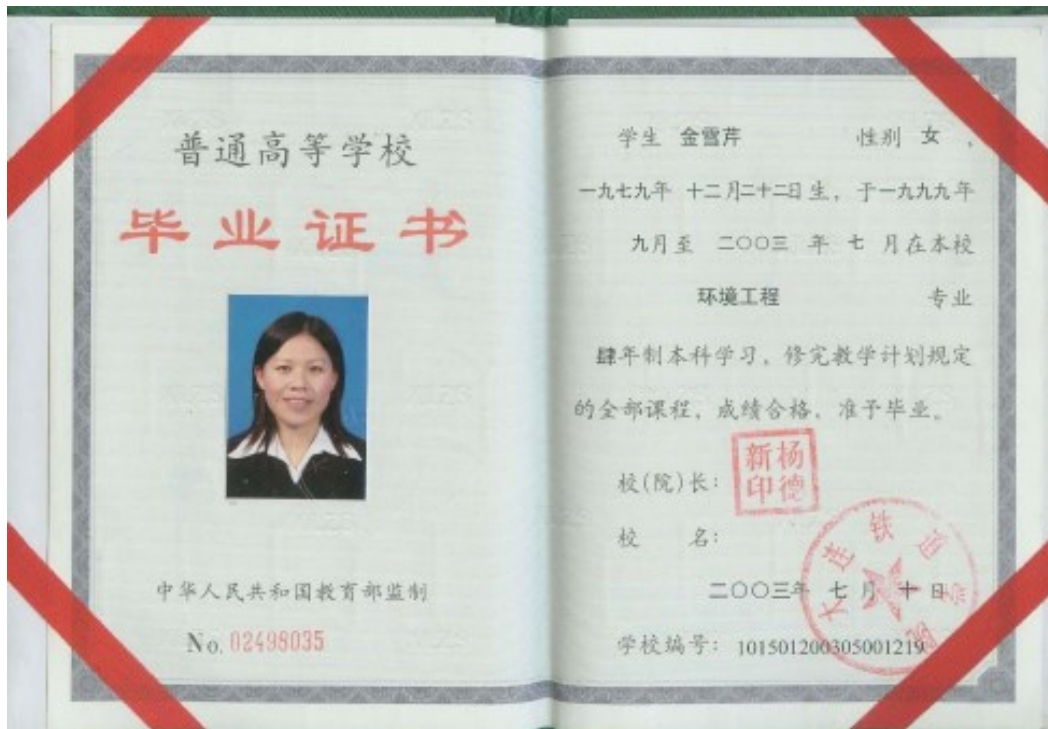 普通高等学校
毕业证书
中华人民共和国教育部监制
No. 02498035
学生 金雪芹 性别 女，
一九七九年 十二月二十二日生，于一九九九年
九月至 二〇〇三 年 七 月在本校
环境工程 专业
肆年制本科学习，修完教学计划规定
的全部课程，成绩合格，准予毕业。
校(院)长：
新杨
印德
校 名：
大连铁道学院
二〇〇三年 七 月 十 日
学校编号：101501200305001219